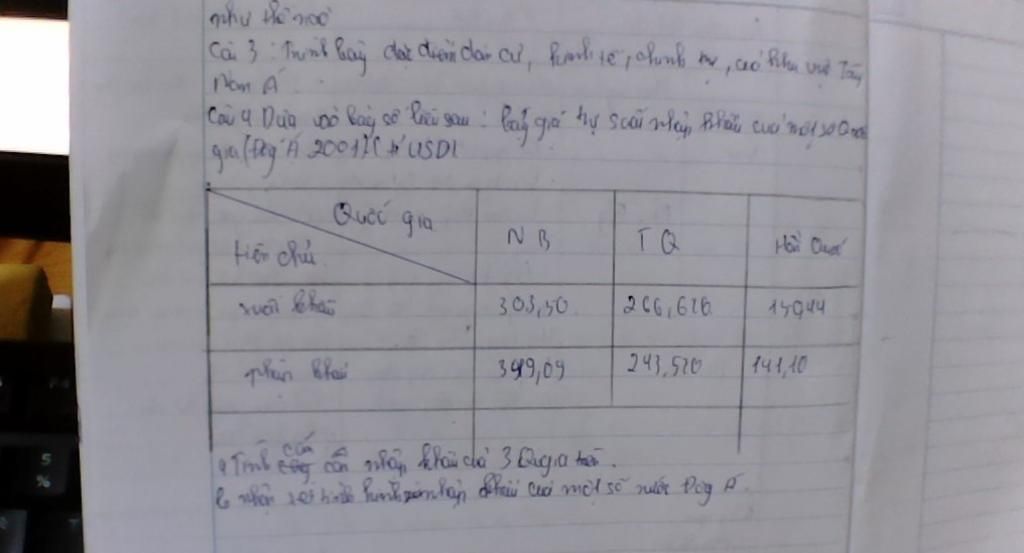 như thế nào
Câu 3: Trình bày đặc điểm dân cư, kinh tế, chính trị, của khu vực Tây
Nam Á
Câu 4 Dựa vào bảng số liệu sau: bảng giá trị xuất nhập khẩu của một số Quốc
gia (Đông Á 2001) (tỉ USD)
Quốc gia
tiêu chí
NB
TQ
Hàn Quốc
xuất khẩu
266,620
nhập khẩu
243,520
141,10
a Tính cán cân nhập khẩu của 3 Q gia trên.
b nhận xét tình hình nhập khẩu của một số nước Đông Á.